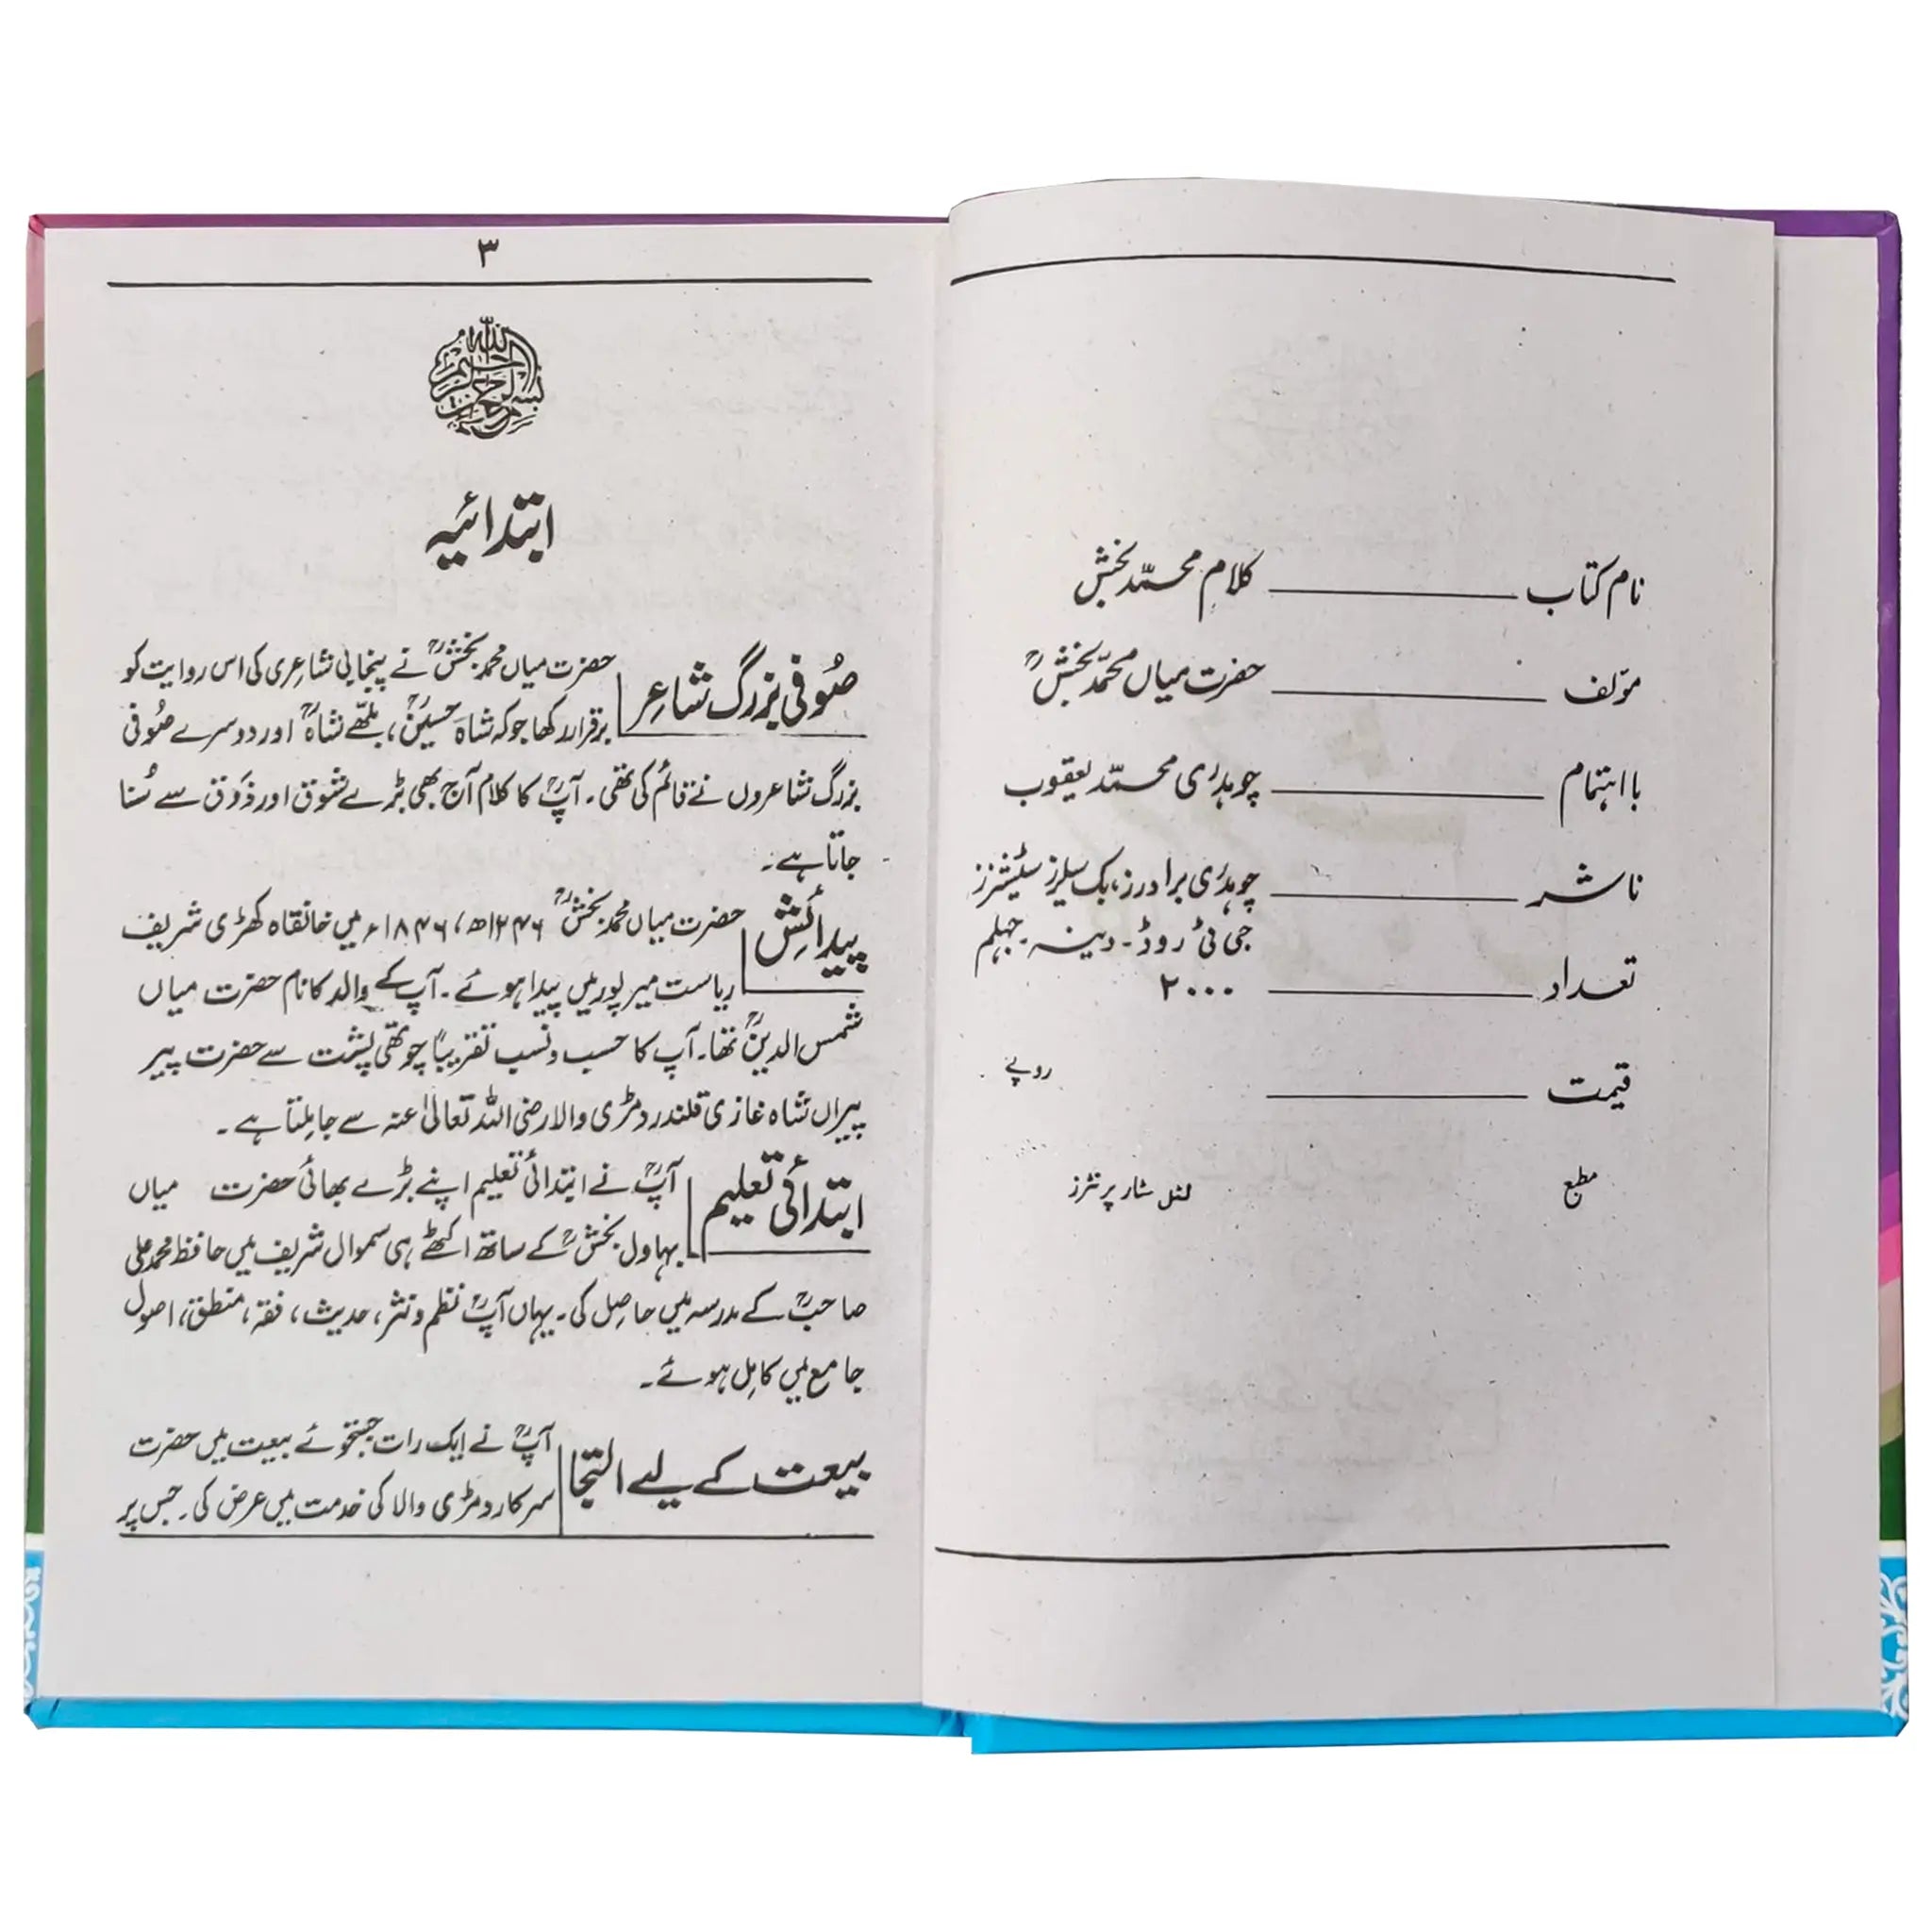 نام کتاب کلام محمّد بخش
مؤلف حضرت میاں محمّد بخشؒ
بااہتمام چوہدری محمّد یعقوب
ناشر چوہدری برادرز، بک سیلرز سٹیشنرز
جی ٹی روڈ۔ دینہ۔ جہلم
تعداد ۲۰۰۰
قیمت روپے
مطبع لٹل سٹار پرنٹرز
۳
بسم اللہ الرحمن الرحیم
ابتدائیہ
صُوفی بزرگ شاعِر حضرت میاں محمد بخشؒ نے پنجابی شاعری کی اس روایت کو
برقرار رکھا جو کہ شاہ حسینؒ، بلھّے شاہؒ اور دوسرے صُوفی
بزرگ شاعروں نے قائم کی تھی۔ آپؒ کا کلام آج بھی بڑے شوق اور ذَوق سے سُنا
جاتا ہے۔
پیدائش حضرت میاں محمد بخشؒ ۱۲۴۶ھ، ۱۸۴۶ء میں خانقاہ کھڑی شریف
ریاست میر پور میں پیدا ہوئے۔ آپ کے والد کا نام حضرت میاں
شمس الدینؒ تھا۔ آپ کا حسب و نسب تقریباً چوتھی پشت سے حضرت پیر
پیراں شاہ غازی قلندر دمڑی والا رضی اللہ تعالیٰ عنہ سے جا ملتا ہے۔
ابتدائی تعلیم آپؒ نے ابتدائی تعلیم اپنے بڑے بھائی حضرت میاں
بہاول بخشؒ کے ساتھ اکٹھے ہی سموال شریف میں حافظ محمد علی
صاحبؒ کے مدرسہ میں حاصِل کی۔ یہاں آپؒ نظم و نثر، حدیث، فقہ، منطق، اصول
جامع میں کامِل ہوئے۔
بیعت کے لیے التجا آپؒ نے ایک رات جستجوئے بیعت میں حضرت
سرکار دمڑی والا کی خدمت میں عرض کی۔ جس پر